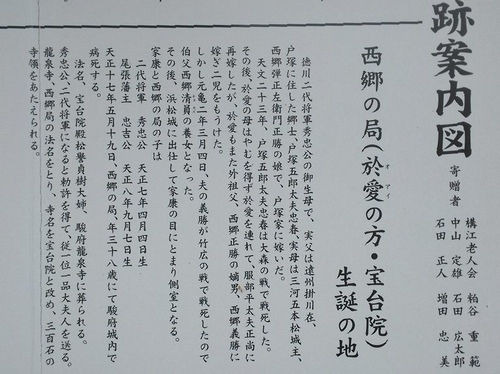 跡案内図
寄贈者
構江老人会 粕谷 重範
中山 定雄 石田 広太郎
石田 正人 増田 忠美
西郷の局(於愛の方・宝台院)
オアイ
生誕の地
徳川二代将軍秀忠公の御生母で、実父は遠州掛川在、
戸塚に住した郷士、戸塚五郎太夫忠春、実母は三河五本松城主、
西郷弾正左衛門正勝の娘で、戸塚家に嫁いだ。
天文二十三年、戸塚五郎太夫忠春は大森の戦で戦死した。
その後、於愛の母はやむを得ず於愛を連れて、服部平太夫正尚に
再嫁したが、於愛もまた外祖父、西郷正勝の嫡男、西郷義勝に
嫁ぎ二児をもうけた。
しかし元亀二年三月四日、夫の義勝が竹広の戦で戦死したので
伯父西郷清員の養女となった。
その後、浜松城に出仕して家康の目にとまり側室となる。
家康と西郷の局の子は
二代将軍 秀忠公 天正七年四月四日生
尾張藩主 忠吉公 天正八年九月七日生
天正十七年五月十九日、西郷の局、年三十八歳にて駿府城内で
病死する。
法名、宝台院殿松誉貞樹大姉、駿府龍泉寺に葬られる。
秀忠公、二代将軍になると勅許を得て、従一位一品大夫人を送る。
龍泉寺、西郷局の法名をとり、寺名を宝台院と改め、三百石の
寺領をあたえられる。